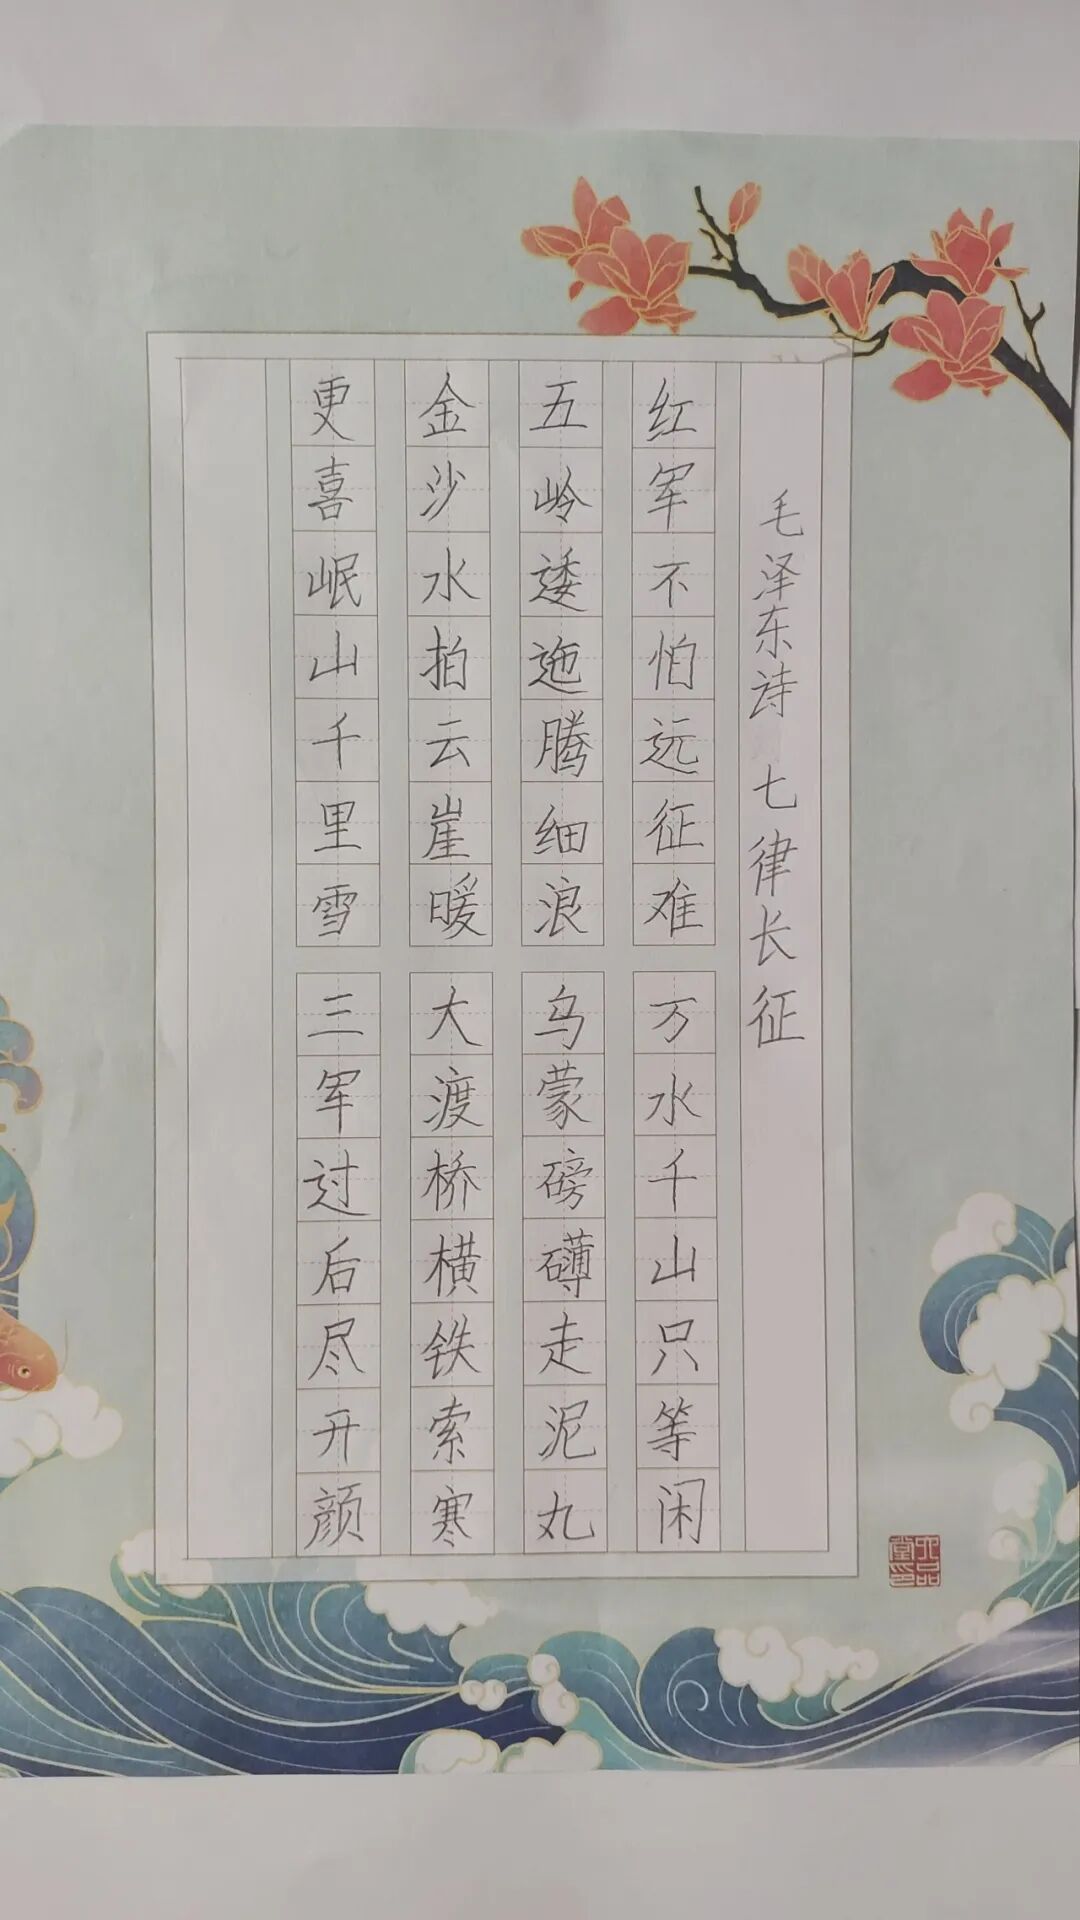 毛泽东诗 七律长征
红军不怕远征难
万水千山只等闲
五岭逶迤腾细浪
乌蒙磅礴走泥丸
金沙水拍云崖暖
大渡桥横铁索寒
更喜岷山千里雪
三军过后尽开颜